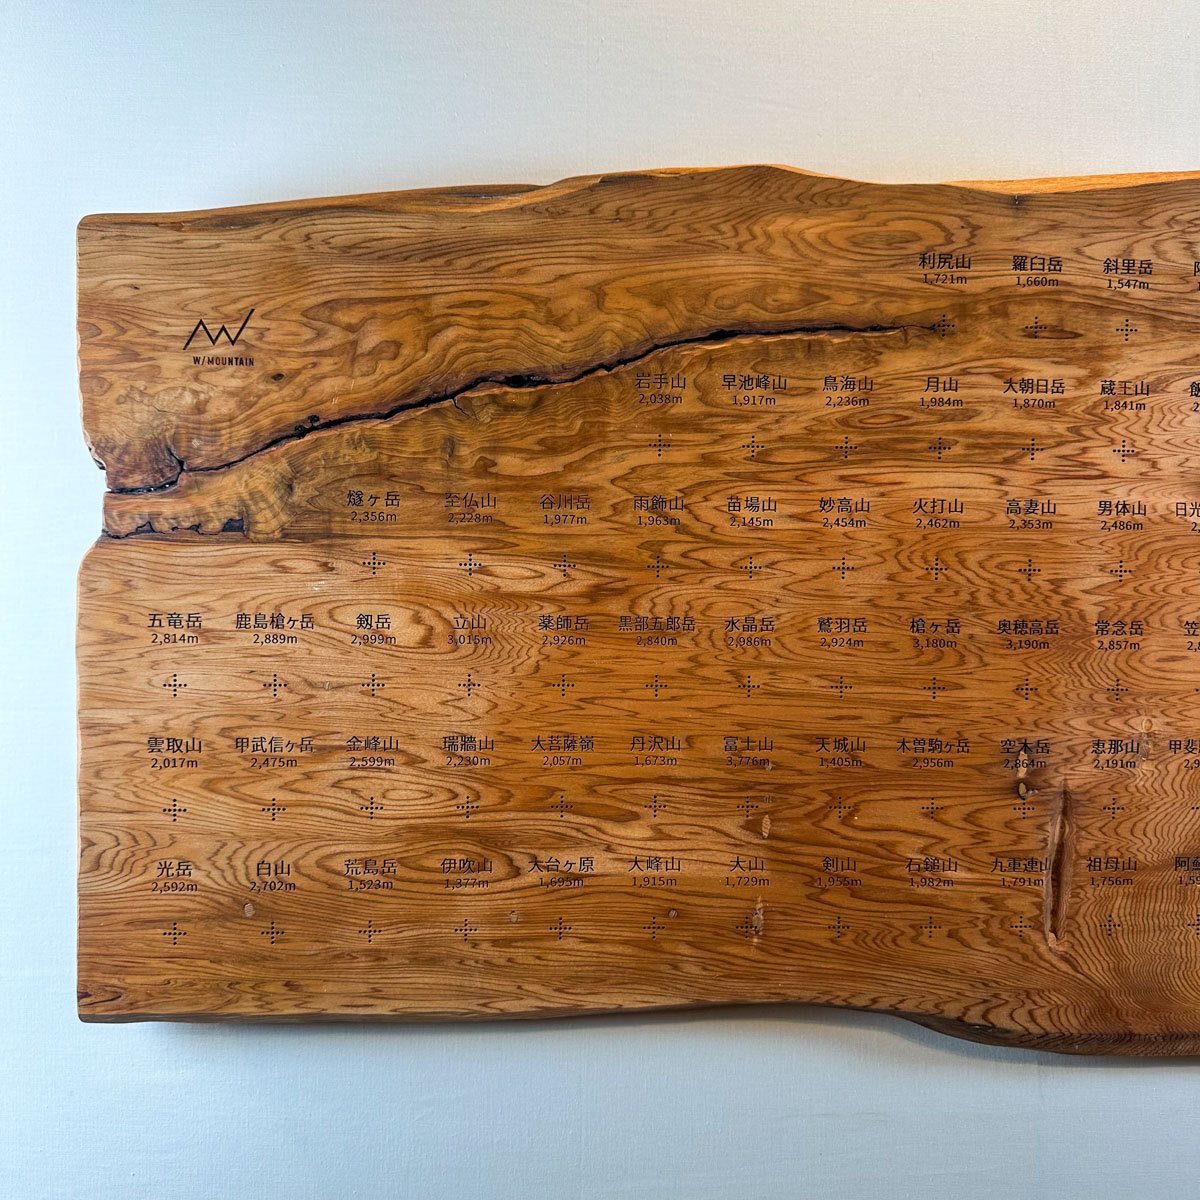 利尻山 羅臼岳 斜里岳
1,721m 1,660m 1,547m
W/MOUNTAIN
岩手山 早池峰山 鳥海山 月山 大朝日岳 蔵王山
2,038m 1,917m 2,236m 1,984m 1,870m 1,841m
燧ヶ岳 至仏山 谷川岳 雨飾山 苗場山 妙高山 火打山 高妻山 男体山 日光
2,356m 2,228m 1,977m 1,963m 2,145m 2,454m 2,462m 2,353m 2,486m
五竜岳 鹿島槍ヶ岳 剱岳 立山 薬師岳 黒部五郎岳 水晶岳 鷲羽岳 槍ヶ岳 奥穂高岳 常念岳 笠
2,814m 2,889m 2,999m 3,015m 2,926m 2,840m 2,986m 2,924m 3,180m 3,190m 2,857m
雲取山 甲武信ヶ岳 金峰山 瑞牆山 大菩薩嶺 丹沢山 富士山 天城山 木曽駒ヶ岳 空木岳 恵那山 甲斐
2,017m 2,475m 2,599m 2,230m 2,057m 1,673m 3,776m 1,405m 2,956m 2,864m 2,191m
光岳 白山 荒島岳 伊吹山 大台ヶ原 大峰山 大山 剣山 石鎚山 九重連山 祖母山
2,592m 2,702m 1,523m 1,377m 1,695m 1,915m 1,729m 1,955m 1,982m 1,791m 1,756m